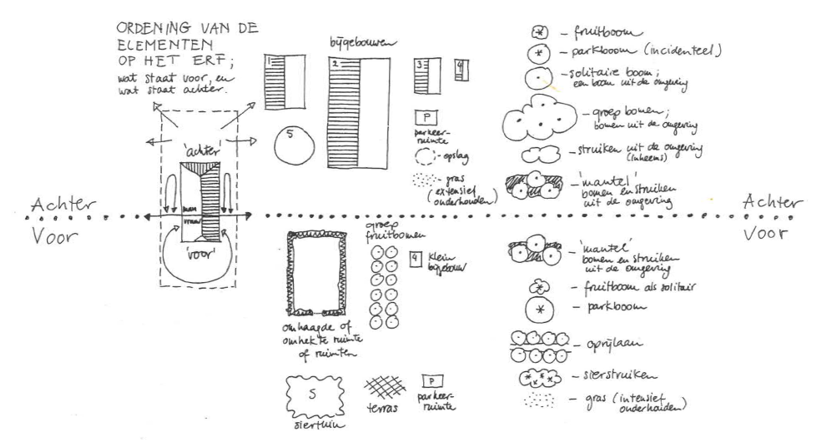 ORDENING VAN DE
ELEMENTEN
OP HET ERF;
wat staat voor, en
wat staat achter.
'achter'
'voor'
Achter
Voor
bijgebouwen
1
2
3
4
5
P
parkeer-
ruimte
- opslag
- gras
(extensief
onderhouden)
- fruitboom
- parkboom (incidenteel)
- solitaire boom;
een boom uit de omgeving
- groep bomen;
bomen uit de omgeving
- struiken uit de omgeving
(inheems)
- 'mantel'
bomen en struiken
uit de omgeving
Achter
Voor
omhaagde of
omhekte ruimte
of ruimten
groep
fruitbomen
4
klein
bijgebouw
S
siertuin
terras
P
parkeer-
ruimte
- 'mantel'
bomen en struiken
uit de omgeving
- fruitboom als solitair
- parkboom
- oprijlaan
- sierstruiken
- gras (intensief
onderhouden)